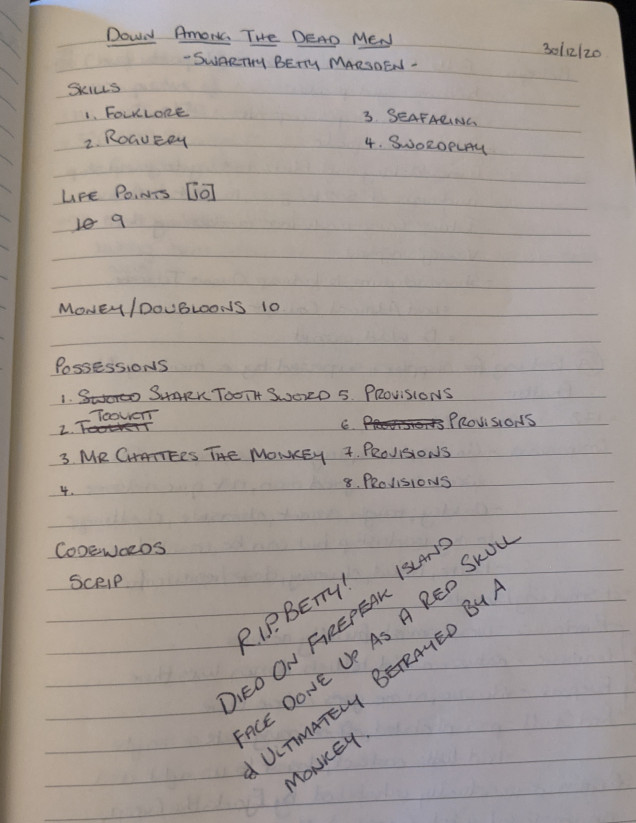 DOWN AMONG THE DEAD MEN
30/12/20
-SWARTHY BETTY MARSDEN-
SKILLS
1. FOLKLORE
3. SEAFARING
2. ROGUERY
4. SWORDPLAY
LIFE POINTS [10]
10 9
MONEY/DOUBLOONS 10
POSSESSIONS
1. SWORD SHARK TOOTH SWORD 5. PROVISIONS
TOOLKIT
2. TOOLKIT 6. PROVISIONS PROVISIONS
3 MR CHATTERS THE MONKEY 7. PROVISIONS
4. 8. PROVISIONS
CODEWORDS
SCRIP
R.I.P. BETTY!
DIED ON FIREPEAK ISLAND
FACE DONE UP AS A RED SKULL
& ULTIMATELY BETRAYED BY A
MONKEY.